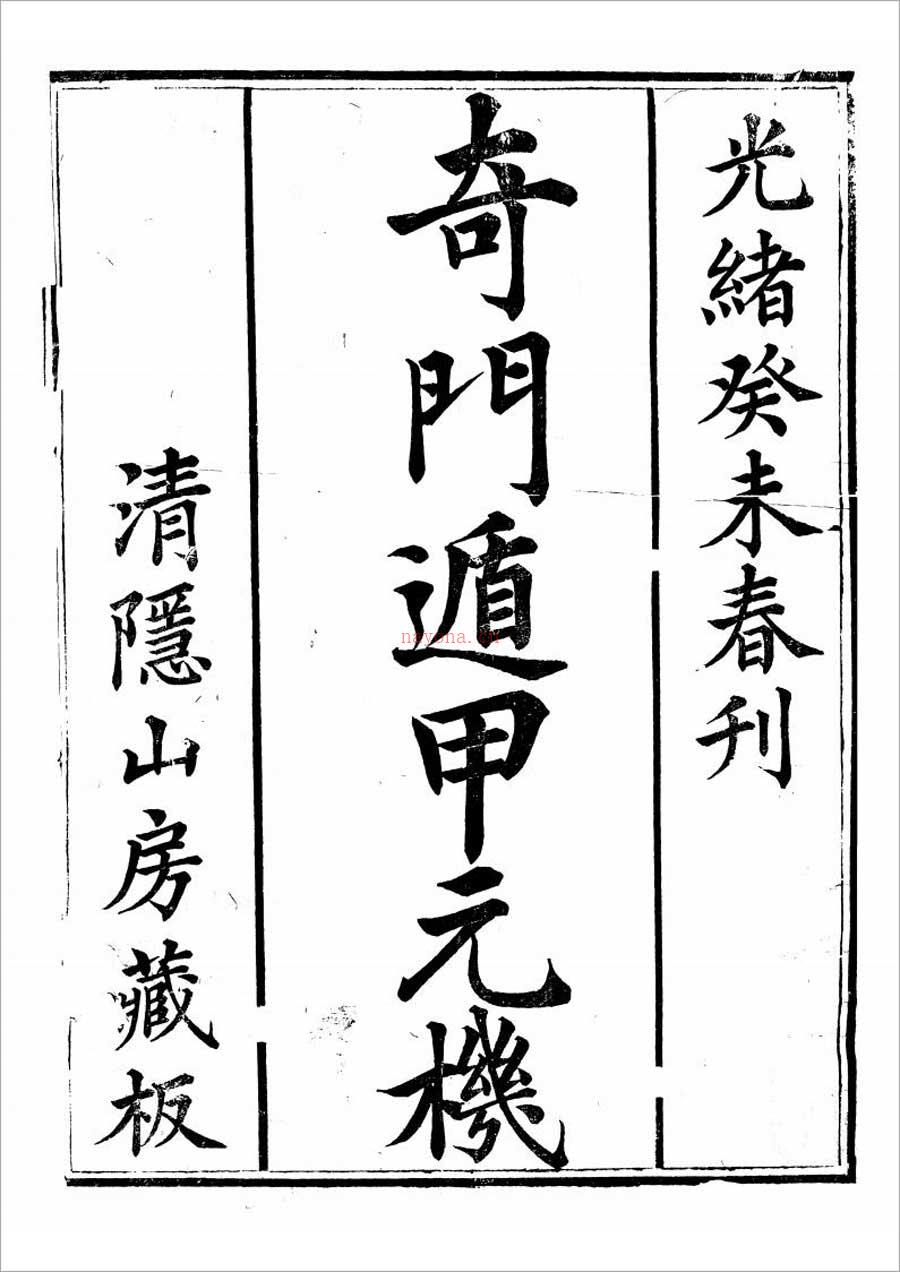 光緒癸未春刊
奇門遁甲元機
清隱山房藏板
nayona.cn